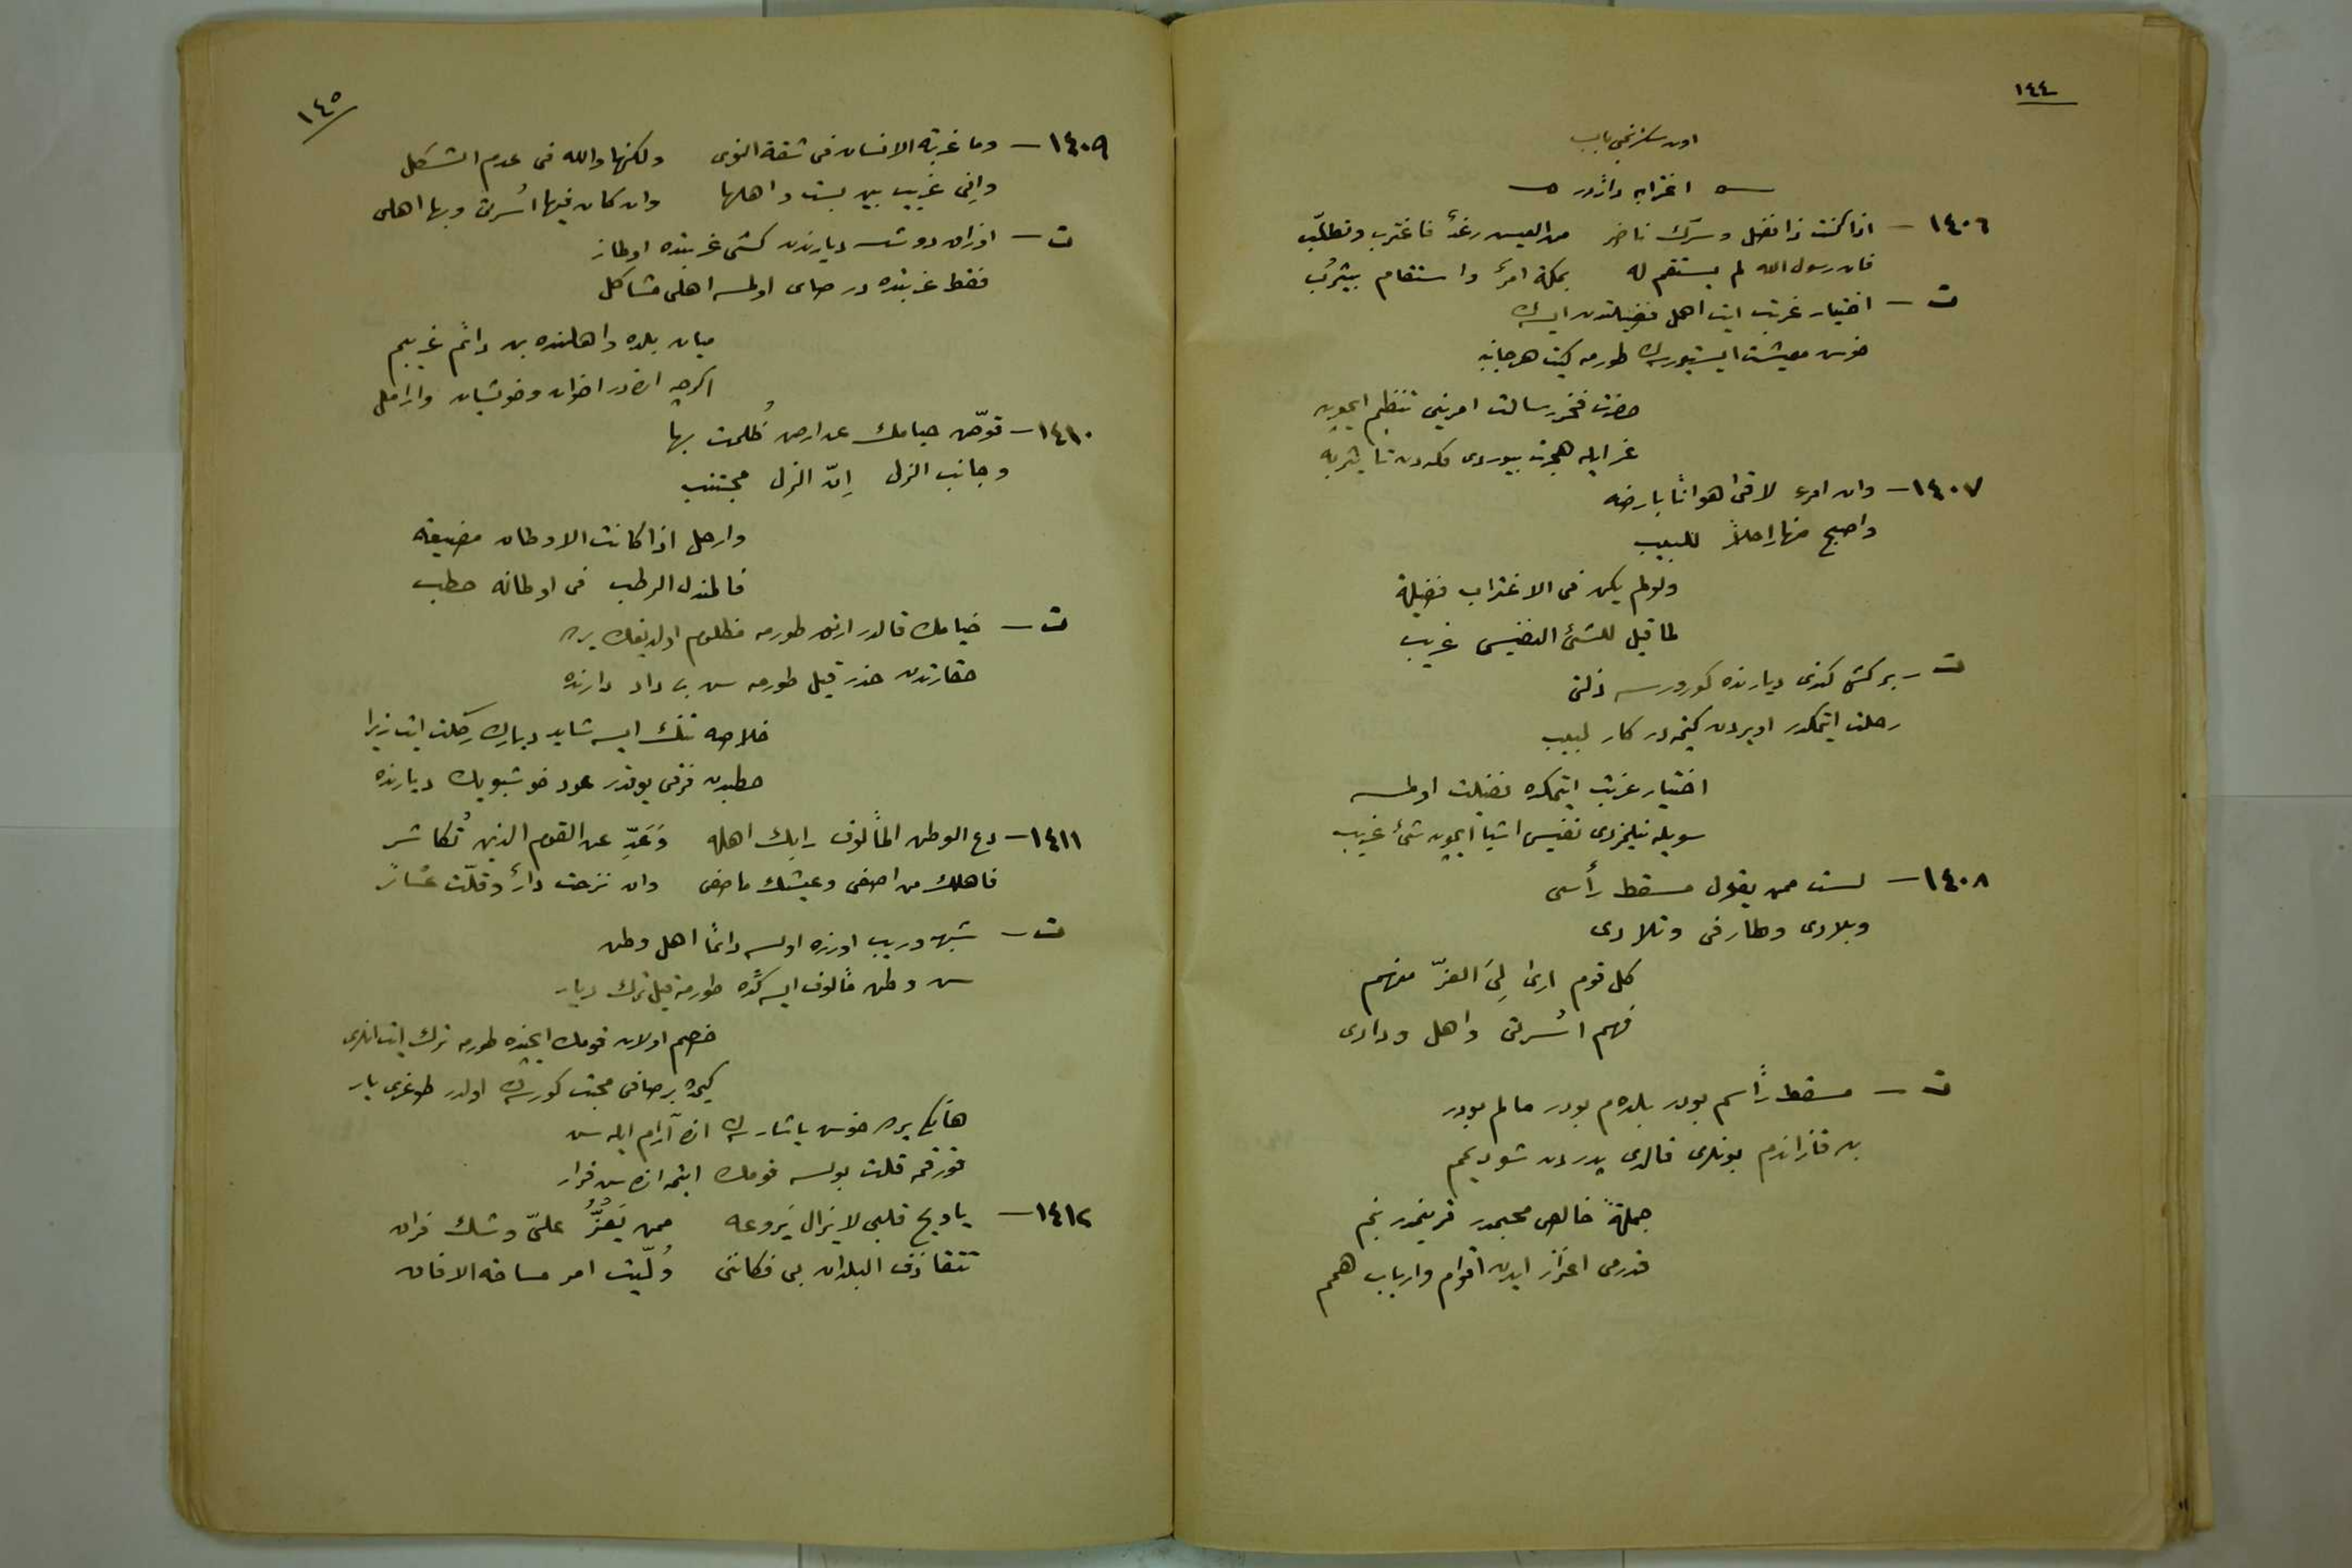 ١٤٤
اون سكزنجى باب
اغترابه دائردر
١٤٠٦ — اذا كنت ذا فضل وسرك ناضر من العيش رغد فاغترب وتطلّب
فان رسول الله لم يستقم له بمكة امرٌ واستقام بيثرب
ت — اختيار غربت ايت اهل فضيلتدن ايسه ك
خوش معيشت ايستيورسه ك طورمه كيت هر جانبه
حضرت فخر رسالت امرينى تنظيم ايچون
عز ايله هجرت بيوردى مكه دن تا يثربه
١٤٠٧ — وان امرء لاقى هوانًا بارضه
واصبح منها راحلاً للبيب
ولو لم يكن فى الاغتراب فضيلة
لما قيل للشئ النفيس غريب
ت — بر كشى كندى ديارنده كورورسه ذلتى
رحلت ايتمكدر اويردن كيتمه در كار لبيب
اختيار غربت ايتمكده فضيلت اولمسه
سويله نيلمزدى نفيس اشيا ايچون شئ غريب
١٤٠٨ — لست ممن يقول مسقط رأسى
وبلادى وطارفى وتلادى
كل قوم ارى لِىَ العزّ منهم
فهم اُسرتى واهل ودادى
ت — مسقط رأسم بودر بلده م بودر مالم بودر
بن قزاندم بونلرى قالدى پدردن شو ديمم
جملةً خالص محبمدر قرينمدر بنم
قدرمى اعزاز ايدن اقوام وارباب همم
١٤٥
١٤٠٩ — وما غربة الانسان فى شقة النوى ولكنها والله فى عدم الشكل
وانى غريب بين بست واهلها وان كان فيها اُسرتى وبها اهلى
ت — اوزاق دوشسه ديارندن كشى غربتده اولماز
فقط غربتده در صاى اولمسه اهلى مشاكل
ميان بلده واهلنده بن دائم غريبم
اكرچه انده در اخوان وخويشان وارامل
١٤١٠ — قوّض خيامك عن ارض ظُلمت بها
وجانب الذل اِنّ الذل مجتنب
وارحل اذا كانت الاوطان مضيعة
فالمندل الرطب فى اوطانه حطب
ت — خيامك قالدر ارتق طورمه مظلوم اولديغك يرده
حقارتدن حذر قيل طورمه سن بى داد دارنده
خلاصه تنك ايسه شايد ديارك رحلت ايت زيرا
حطبدن فرقى يوقدر عود خوشبويك ديارنده
١٤١١ — دع الوطن المألوف رابك اهله وَعَدِّ عن القوم الذين تُكاشر
فاهلك من اصفى وعيشك ما صفى وان نزحت دارٌ وقلّت عشائر
ت — شبهه وريب اوزره اولسه دائما اهل وطن
سن وطن مألوف ايسه كده طورمه قيل ترك ديار
خصم اولان قومك ايچنده طورمه ترك ايت انلرى
كيمده بر صافى محبت كورسه ك اولدر طوغرى يار
هانكى يرده خوش ياشارسه ك انده آرام ايله سن
قورقمه قلت بولسه قومك ايتمه انده سن قرار
١٤١٢ — يا ويح قلبى لا يزال يَروعه ممن يَعِزُّ علىّ وشك فراق
تتقاذف البلدان بى فكاننى وُلّيت امر مساحة الافاق